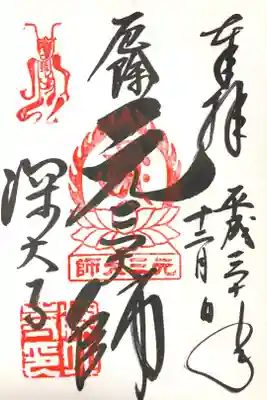 奉拝
平成三十年
十二月 日
厄除
元三大師
元三大師
深大寺